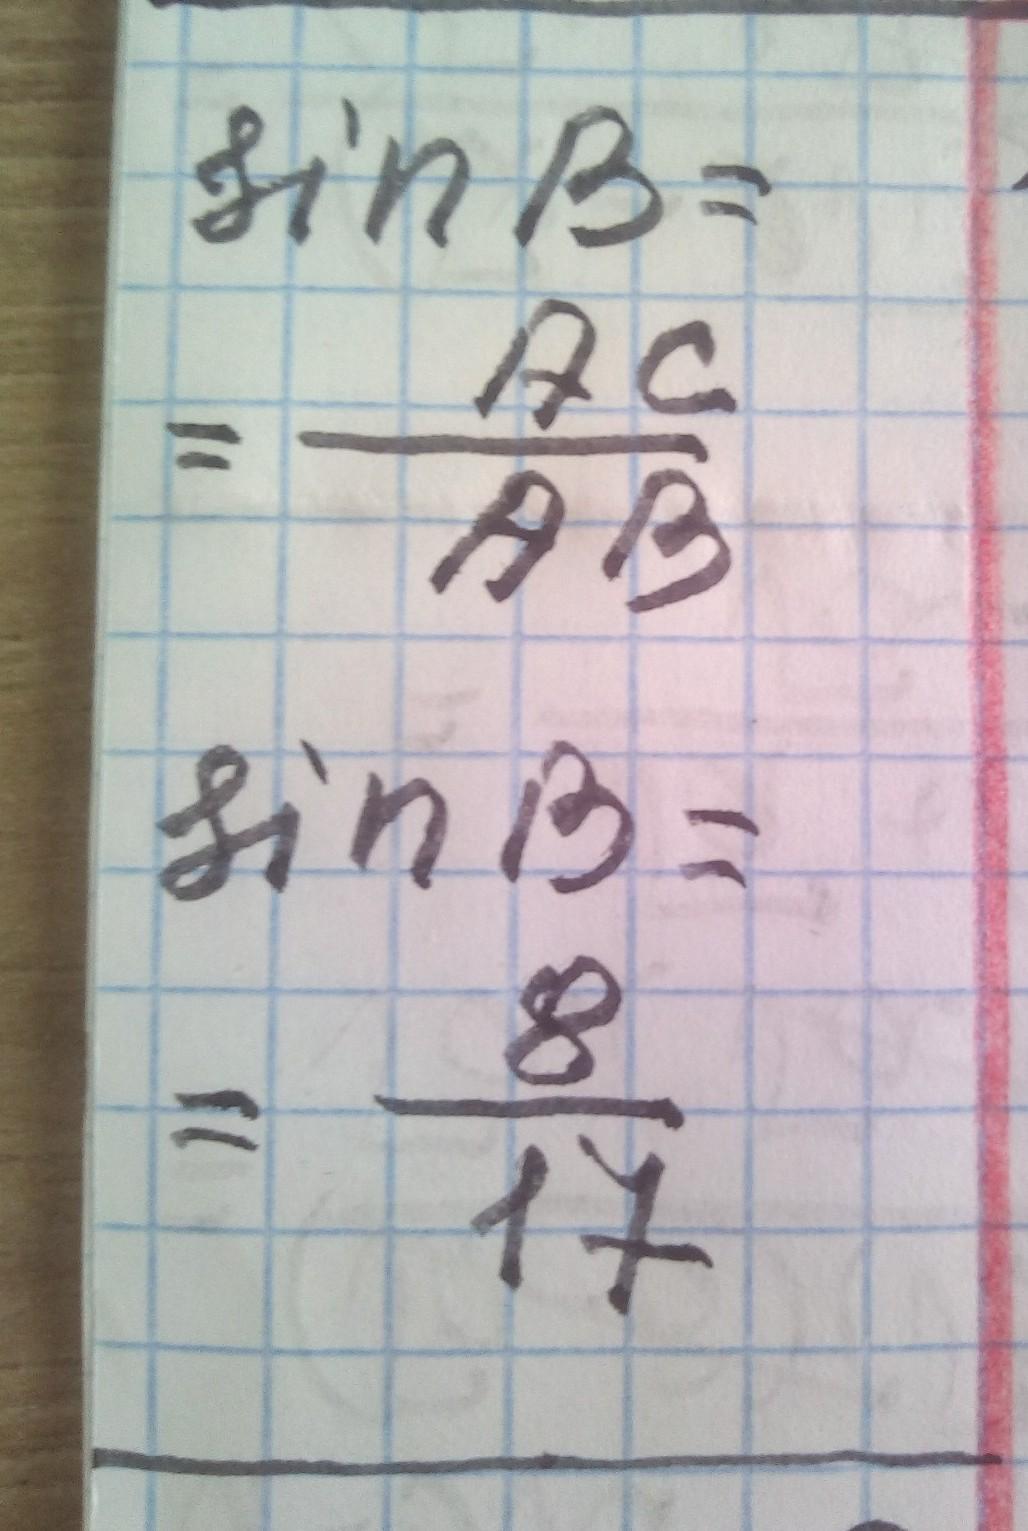 sin B =
= AC / AB
sin B =
= 8 / 17